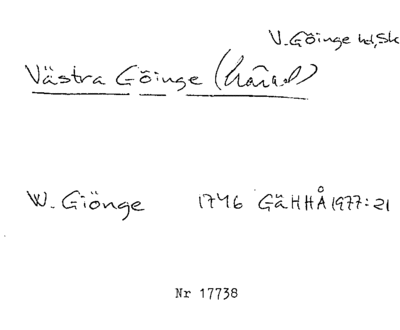 V. Göinge hd, Sk
Västra Göinge (härad)
W. Giönge 1746 GäHHÅ 1977:21
Nr 17738